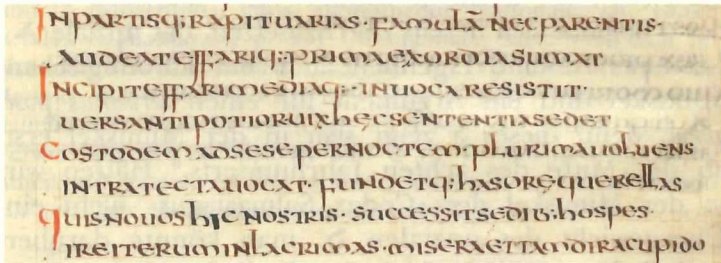 INPARTISQ;RAPITUARIAS·FAMULĀNECPARENTIS·
AUDEATEFFARIQ;PRIMAEXORDIASUMAT
INCIPITEFFARIMEDIAQ;·INUOCARESISTIT·
UERSANTIPOTIORUIXHĘCSENTENTIASEDET
COSTODEMADSESEPERNOCTEM·PLURIMAUOLUENS
INTRATECTAUOCAT·FUNDETQ;HASORĘQUERELLAS
QUISNOUOSHICNOSTRIS·SUCCESSITSEDIB;HOSPES·
IREITERUMINLACRIMAS·MISERAETTAMDIRACUPIDO